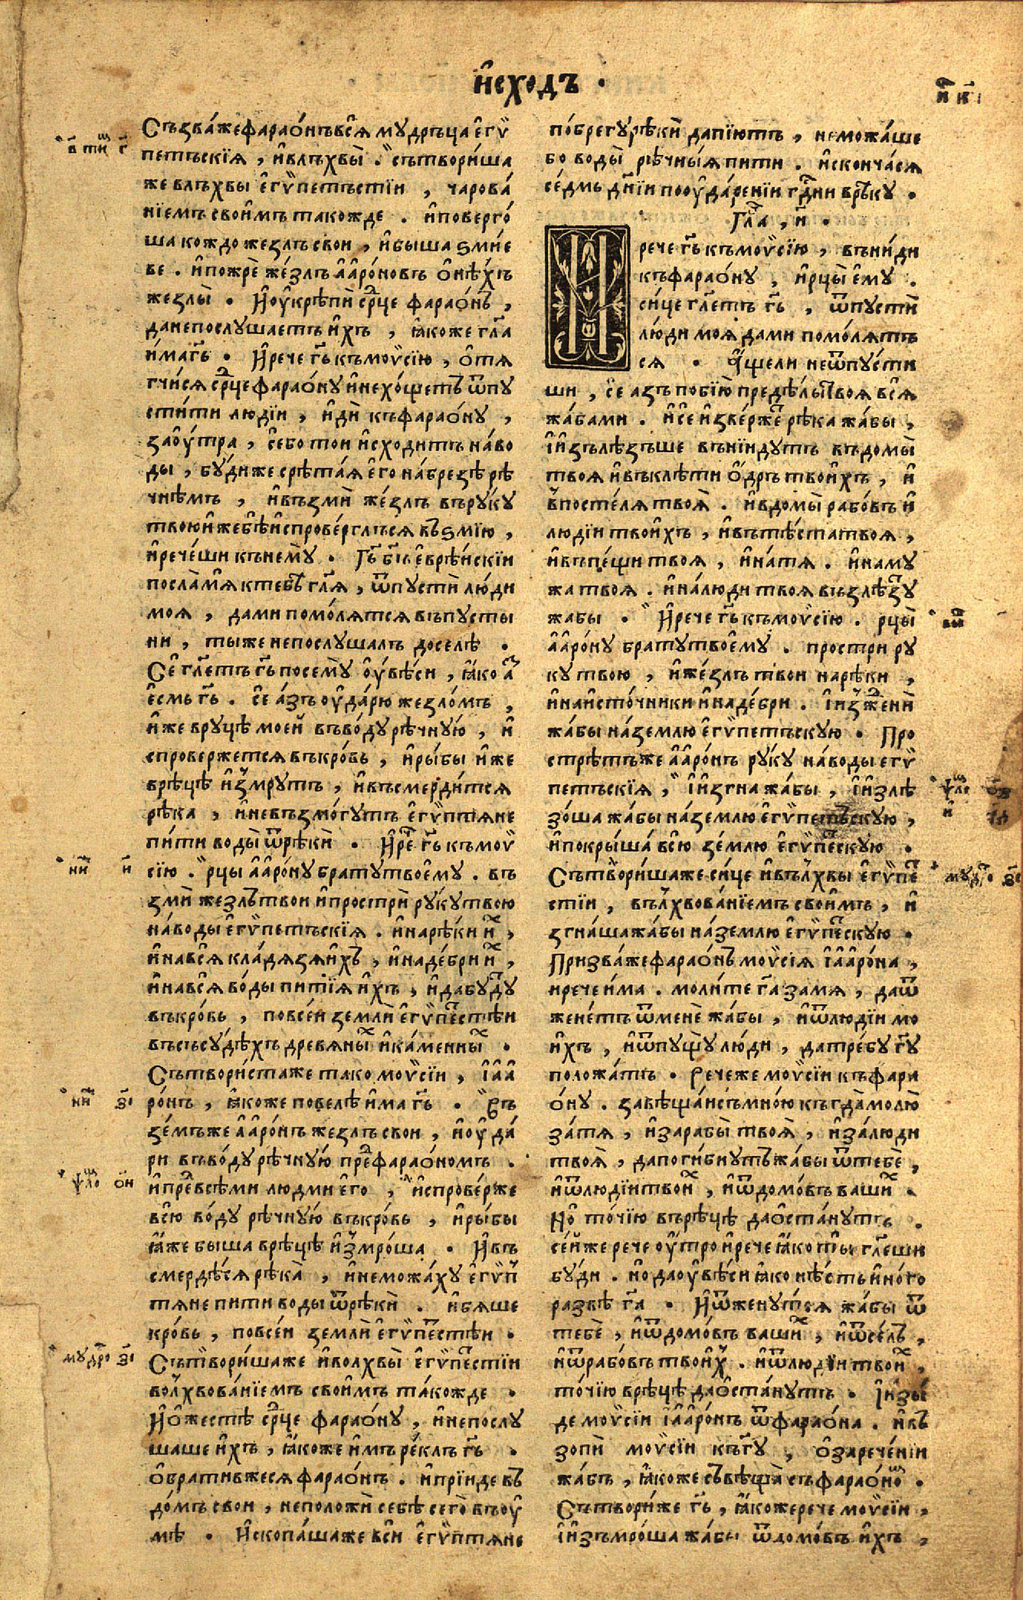 И҆схо́дъ ·
к҃и
Съзва́ же фарао́нъ всѧ̀ мꙋдръца̀ є҆гѵ̑
петьскїѧ , и҆влъхвы̀ . сътвори́ша
же влъхвы є҆гѵ́петьстїи , чарова́
нїемъ свои́мъ тако́жде . и҆поверго́
ша кождо же́злъ свои , и҆быша ѕмїе
ве . и҆пожрѐ же́злъ а҆аро́новъ о҆нѣ́хъ
жезлы̀ . И҆оу҆крѣпи́ срⷣце фарао́нъ ,
дане послꙋ́шаетъ и҆хъ , ꙗ҆́коже гл҃а
и҆́ма гь҃ . И҆рече гь҃ къмоѷсїю , ѻ҆тѧ
гчи́сѧ срⷣце фарао́нꙋ и҆нехо́щетъ ѿпꙋ
сти́ти людїи , и҆дѝ къфарао́нꙋ ,
заоу҆́тра , се́бо то́и и҆схо́дитъ на́во
ды , бꙋ́ди же срѣта́ѧ є҆го на́брезѣ рѣ
чнѣмъ , и҆възмѝ же́злъ врꙋ́кꙋ
твою и҆же бѣ̀ и҆спрове́рглъсѧ въѕмїю ,
и҆рече́ши кънемꙋ̀ . Гь҃ бг҃ъ є҆вре́искїи
посла́мѧ ктебѣ̀ гл҃ѧ , ѿпꙋстѝ лю́ди
моѧ , дами помо́лѧтсѧ въпꙋсты
ни , ты́же непослꙋшалъ доселѣ .
Се́ гл҃етъ гь҃ посемꙋ̀ оу҆вѣ́си , ꙗ҆́ко а҆́з
є҆смь гь҃ . се́ а҆́зъ оу҆да́рю жезло́мъ ,
и҆́же врꙋцѣ̀ мое́й въво́дꙋ рѣчнꙋ́ю , и҆
спрове́ржетсѧ въкро́вь , и҆ры́бы и҆же
врѣцѣ̀ и҆змрꙋтъ , и҆въсмерди́тсѧ
рѣка̀ , и҆невъзмо́гꙋтъ є҆гѵ́птѧне
пи́ти воды̀ ѿрѣкѝ . И҆ре́че гь҃ къмоѷ
сїю . рцы а҆аро́нꙋ братꙋ твоемꙋ . въ
змѝ же́злъ твои и҆простри́ рꙋ́кꙋ твою
на́воды є҆гѵ́петьскїѧ . и҆нарѣ́ки и҆х ,
и҆навсѧ̀ кла́дѧзѧ и҆хъ , и҆наде́бри и҆х ,
и҆навсѧ̀ во́ды пити́ѧ и҆хъ , и҆дабꙋдꙋ
въкро́вь , повсе́и землѝ є҆гѵ́петстѣи
въсъсꙋ́дѣхъ древѧны́х и҆ка́менны́х .
Сътвори́ста же тако моѷсїи , і҆а҆а
ро́нъ , ꙗ҆́коже повелѣ̀ и҆́ма гь҃ . въ
зе́мъ же а҆аро́нъ же́злъ свои , и҆оу҆да́
ри въво́дꙋ рѣчнꙋ́ю преⷣфарао́номъ .
и҆преⷣвсѣми людми є҆го , и҆спрове́рже
всю̀ во́дꙋ рѣчнꙋ́ю въкро́вь , и҆ры́бы
ꙗ҆́же быша врѣцѣ̀ и҆змро́ша . И҆въ
смердѣ́сѧ рѣка̀ , и҆немо́жахꙋ є҆гѵ́п
тѧне пи́ти воды̀ ѿрѣкѝ . и҆бѧше
кро́вь , повсе́и землѝ є҆гѵ́петстѣи .
Сътвори́шаже и҆волхвы̀ є҆гѵ́петстїи
волхвова́нїемъ свои́мъ та́кожде .
И҆ѻ҆жестѣ̀ срⷣце фарао́нꙋ , и҆непослꙋ
шаше и҆хъ , ꙗ҆́коже и҆́мъ ре́клъ гь҃ .
ѻ҆брати́вжесѧ фарао́нъ . и҆прїиде въ
домъ свои , неположѝ себѣ̀ сего̀ въоу҆
мѣ̀ . И҆скопа́шаже всѝ є҆гѵ́птѧне
по́брегꙋ рѣкѝ дапїю́тъ , немо́жаше
бо воды̀ рѣчны́ѧ пи́ти . и҆сконча́сѧ
се́дмь дн҃їи пооу҆даре́нїи гдⷭ҇ни врѣкꙋ .
Глⷡ҇а , и҃ .
И҆рече гь҃ къмоѷсїю , въни́ди
къфарао́нꙋ , и҆рцы̀ є҆мꙋ .
си́це гл҃етъ гь҃ , ѿпꙋстѝ
лю́ди моѧ дами помо́лѧтъ
сѧ . А҆́щели не ѿпꙋсти
ши , се́ азъ побїю̀ предѣлы̀ твоѧ всѧ̀
жа́бами . и҆се́ и҆зве́рже рѣка жа́бы ,
і҆и҆злѣ́зъше вънїидꙋтъ въдо́мы
твоѧ и҆въклѣ́ти о҆дръ твои́хъ , и҆
впосте́лѧ твоѧ̀ . и҆вдо́мы рабо́въ и҆
люді́и твои́хъ , и҆втѣ́ста твоѧ ,
и҆впе́щи твоѧ , и҆на́тѧ . и҆намꙋ
жа твоѧ . и҆налю́ди твоѧ възлѣ́зꙋ
жабы . И҆рече гь҃ къмоѷсїю . рцы̀
а҆аро́нꙋ братꙋ твоемꙋ . простри рꙋ
кꙋ твою , и҆же́злъ твои нарѣ́ки ,
и҆наи҆сто́чники и҆наде́бри . і҆и҆зженѝ
жа́бы на́землю є҆гѵ́петьскꙋю . Про
стрѣ́тъже а҆аро́нъ рꙋкꙋ на́воды є҆гѵ́
петьскїѧ , і҆и҆згна жа́бы , і҆и҆злѣ
зо́ша жа́бы на́землю є҆гѵ́петьскꙋю ,
и҆покры́ша всю̀ зе́млю є҆гѵ́петскꙋю .
Сътвори́шаже си́це и҆вълхвы̀ є҆гѵ́пе
стїи , вълхвова́нїемъ свои́мъ , и҆
згна́ша жа́бы на́землю є҆гѵ́петскꙋю .
Призва́же фарао́нъ моѷсїѧ і҆а҆аро́на ,
и҆рече и҆́ма . моли́те гⷭ҇а замѧ̀ , даѿ
жене́тъ ѿменѐ жа́бы , и҆ѿлюді́и мо
и҆хъ , и҆ѿпꙋщꙋ̀ лю́ди , датре́бꙋ гꙋ҃
поло́жатъ . Рече́же моѷсїи къфара
о́нꙋ . завѣщ́аи съмно́ю къгда̀ молю̀
за́тѧ , и҆зарабы̀ твоѧ̀ , и҆залю́ди
твоѧ̀ , дапоги́бнꙋтъ жа́бы ѿтебѐ ,
и҆ѿлюді́и твои́х , и҆ѿдомо́въ ваши́х .
Но́ то́чїю въ рѣцѣ̀ даѻ҆ста́нꙋтъ .
се́йже рече оу҆́тро и҆рече ꙗ҆́ко ты̀ гл҃еши
бꙋ́ди . но да оу҆вѣ́си ꙗ҆́ко нѣ́сть и҆но́го
развѣ гⷭ҇а . И҆ѿженꙋ́тсѧ жа́бы ѿ
тебѐ , и҆ѿдомо́въ ваши́х , и҆ѿсе́лъ ,
и҆ѿрабо́въ твои́х . и҆ѿлюді́и твои́х ,
то́чїю врѣцѣ̀ даѻ҆ста́нꙋтъ . І҆и҆зы́
де моѷсїи і҆а҆аро́нъ ѿфарао́на . и҆въ
зопѝ моѷсїи къгꙋ҃ , ѻ҆заречє́нїи
жа́бъ , ꙗ҆́коже съвѣща̀ съфарао́ном .
Сътвори́же гь҃ , ꙗ҆́коже рече моѷсїи ,
і҆и҆зъмро́ша жа́бы ѿдомо́въ и҆хъ ,